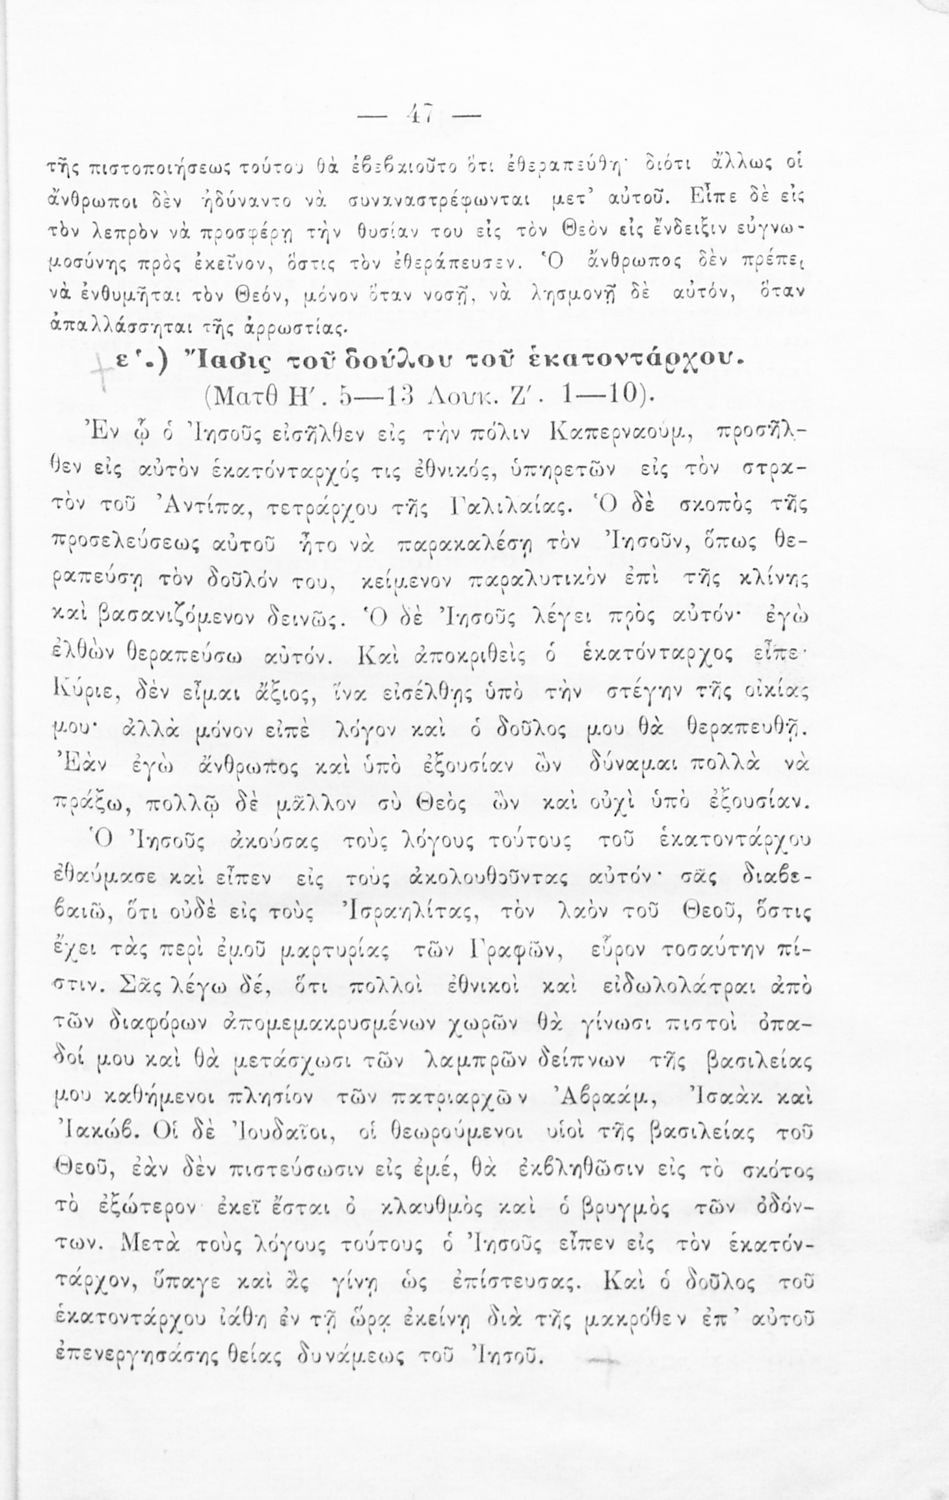 — 47 —
τῆς πιστοποιήσεως τούτου θὰ ἐβεβαιοῦτο ὅτι ἐθεραπεύθη· διότι ἄλλως οἱ
ἄνθρωποι δὲν ἠδύναντο νὰ συναναστρέφωνται μετ' αὐτοῦ. Εἶπε δὲ εἰς
τὸν λεπρὸν νὰ προσφέρῃ τὴν θυσίαν του εἰς τὸν Θεὸν εἰς ἔνδειξιν εὐγνω-
μοσύνης πρὸς ἐκεῖνον, ὅστις τὸν ἐθεράπευσεν. Ὁ ἄνθρωπος δὲν πρέπει
νὰ ἐνθυμῆται τὸν Θεόν, μόνον ὅταν νοσῇ, νὰ λησμονῇ δὲ αὐτόν, ὅταν
ἀπαλλάσσηται τῆς ἀρρωστίας.
ε'.) Ἴασις τοῦ δούλου τοῦ ἑκατοντάρχου.
(Ματθ Η'. 5—13 Λουκ. Ζ'. 1—10).
Ἐν ᾧ ὁ Ἰησοῦς εἰσῆλθεν εἰς τὴν πόλιν Καπερναούμ, προσῆλ-
θεν εἰς αὐτὸν ἑκατόνταρχός τις ἐθνικός, ὑπηρετῶν εἰς τὸν στρα-
τὸν τοῦ Ἀντίπα, τετράρχου τῆς Γαλιλαίας. Ὁ δὲ σκοπὸς τῆς
προσελεύσεως αὐτοῦ ἦτο νὰ παρακαλέσῃ τὸν Ἰησοῦν, ὅπως θε-
ραπεύσῃ τὸν δοῦλόν του, κείμενον παραλυτικὸν ἐπὶ τῆς κλίνης
καὶ βασανιζόμενον δεινῶς. Ὁ δὲ Ἰησοῦς λέγει πρὸς αὐτόν· ἐγὼ
ἐλθὼν θεραπεύσω αὐτόν. Καὶ ἀποκριθεὶς ὁ ἑκατόνταρχος εἶπε·
Κύριε, δὲν εἶμαι ἄξιος, ἵνα εἰσέλθῃς ὑπὸ τὴν στέγην τῆς οἰκίας
μου· ἀλλὰ μόνον εἰπὲ λόγον καὶ ὁ δοῦλος μου θὰ θεραπευθῇ.
Ἐὰν ἐγὼ ἄνθρωπος καὶ ὑπὸ ἐξουσίαν ὢν δύναμαι πολλὰ νὰ
πράξω, πολλῷ δὲ μᾶλλον σὺ Θεὸς ὢν καὶ οὐχὶ ὑπὸ ἐξουσίαν.
Ὁ Ἰησοῦς ἀκούσας τοὺς λόγους τούτους τοῦ ἑκατοντάρχου
ἐθαύμασε καὶ εἶπεν εἰς τοὺς ἀκολουθοῦντας αὐτόν· σᾶς διαβε-
βαιῶ, ὅτι οὐδὲ εἰς τοὺς Ἰσραηλίτας, τὸν λαὸν τοῦ Θεοῦ, ὅστις
ἔχει τὰς περὶ ἐμοῦ μαρτυρίας τῶν Γραφῶν, εὗρον τοσαύτην πί-
στιν. Σᾶς λέγω δέ, ὅτι πολλοὶ ἐθνικοὶ καὶ εἰδωλολάτραι ἀπὸ
τῶν διαφόρων ἀπομεμακρυσμένων χωρῶν θὰ γίνωσι πιστοὶ ὀπα-
δοί μου καὶ θὰ μετάσχωσι τῶν λαμπρῶν δείπνων τῆς βασιλείας
μου καθήμενοι πλησίον τῶν πατριαρχῶν Ἀβραάμ, Ἰσαὰκ καὶ
Ἰακώβ. Οἱ δὲ Ἰουδαῖοι, οἱ θεωρούμενοι υἱοὶ τῆς βασιλείας τοῦ
Θεοῦ, ἐὰν δὲν πιστεύσωσιν εἰς ἐμέ, θὰ ἐκβληθῶσιν εἰς τὸ σκότος
τὸ ἐξώτερον· ἐκεῖ ἔσται ὁ κλαυθμὸς καὶ ὁ βρυγμὸς τῶν ὀδόν-
των. Μετὰ τοὺς λόγους τούτους ὁ Ἰησοῦς εἶπεν εἰς τὸν ἑκατόν-
τάρχον, ὕπαγε καὶ ἂς γίνῃ ὡς ἐπίστευσας. Καὶ ὁ δοῦλος τοῦ
ἑκατοντάρχου ἰάθη ἐν τῇ ὥρᾳ ἐκείνῃ διὰ τῆς μακρόθεν ἐπ' αὐτοῦ
ἐπενεργησάσης θείας δυνάμεως τοῦ Ἰησοῦ.